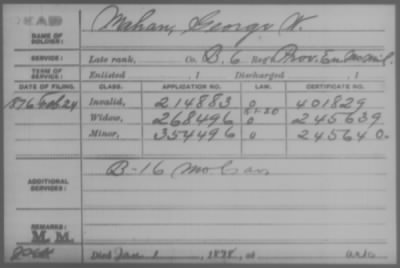 DEAD
NAME OF SOLDIER: Mahan, George W.
SERVICE: Late rank, Co. B, 6 Reg't Prov. En. Mo Mil.
TERM OF SERVICE: Enlisted , 1 Discharged , 1
DATE OF FILING. CLASS. APPLICATION NO. LAW. CERTIFICATE NO.
1876 Feb 24 Invalid, 214883 0 401829
Widow, 268496 0 245639
Minor, 354496 245640
ADDITIONAL SERVICES: B-16 Mo Cav
REMARKS:
M. M.
Died Jan. 1, 1878, at